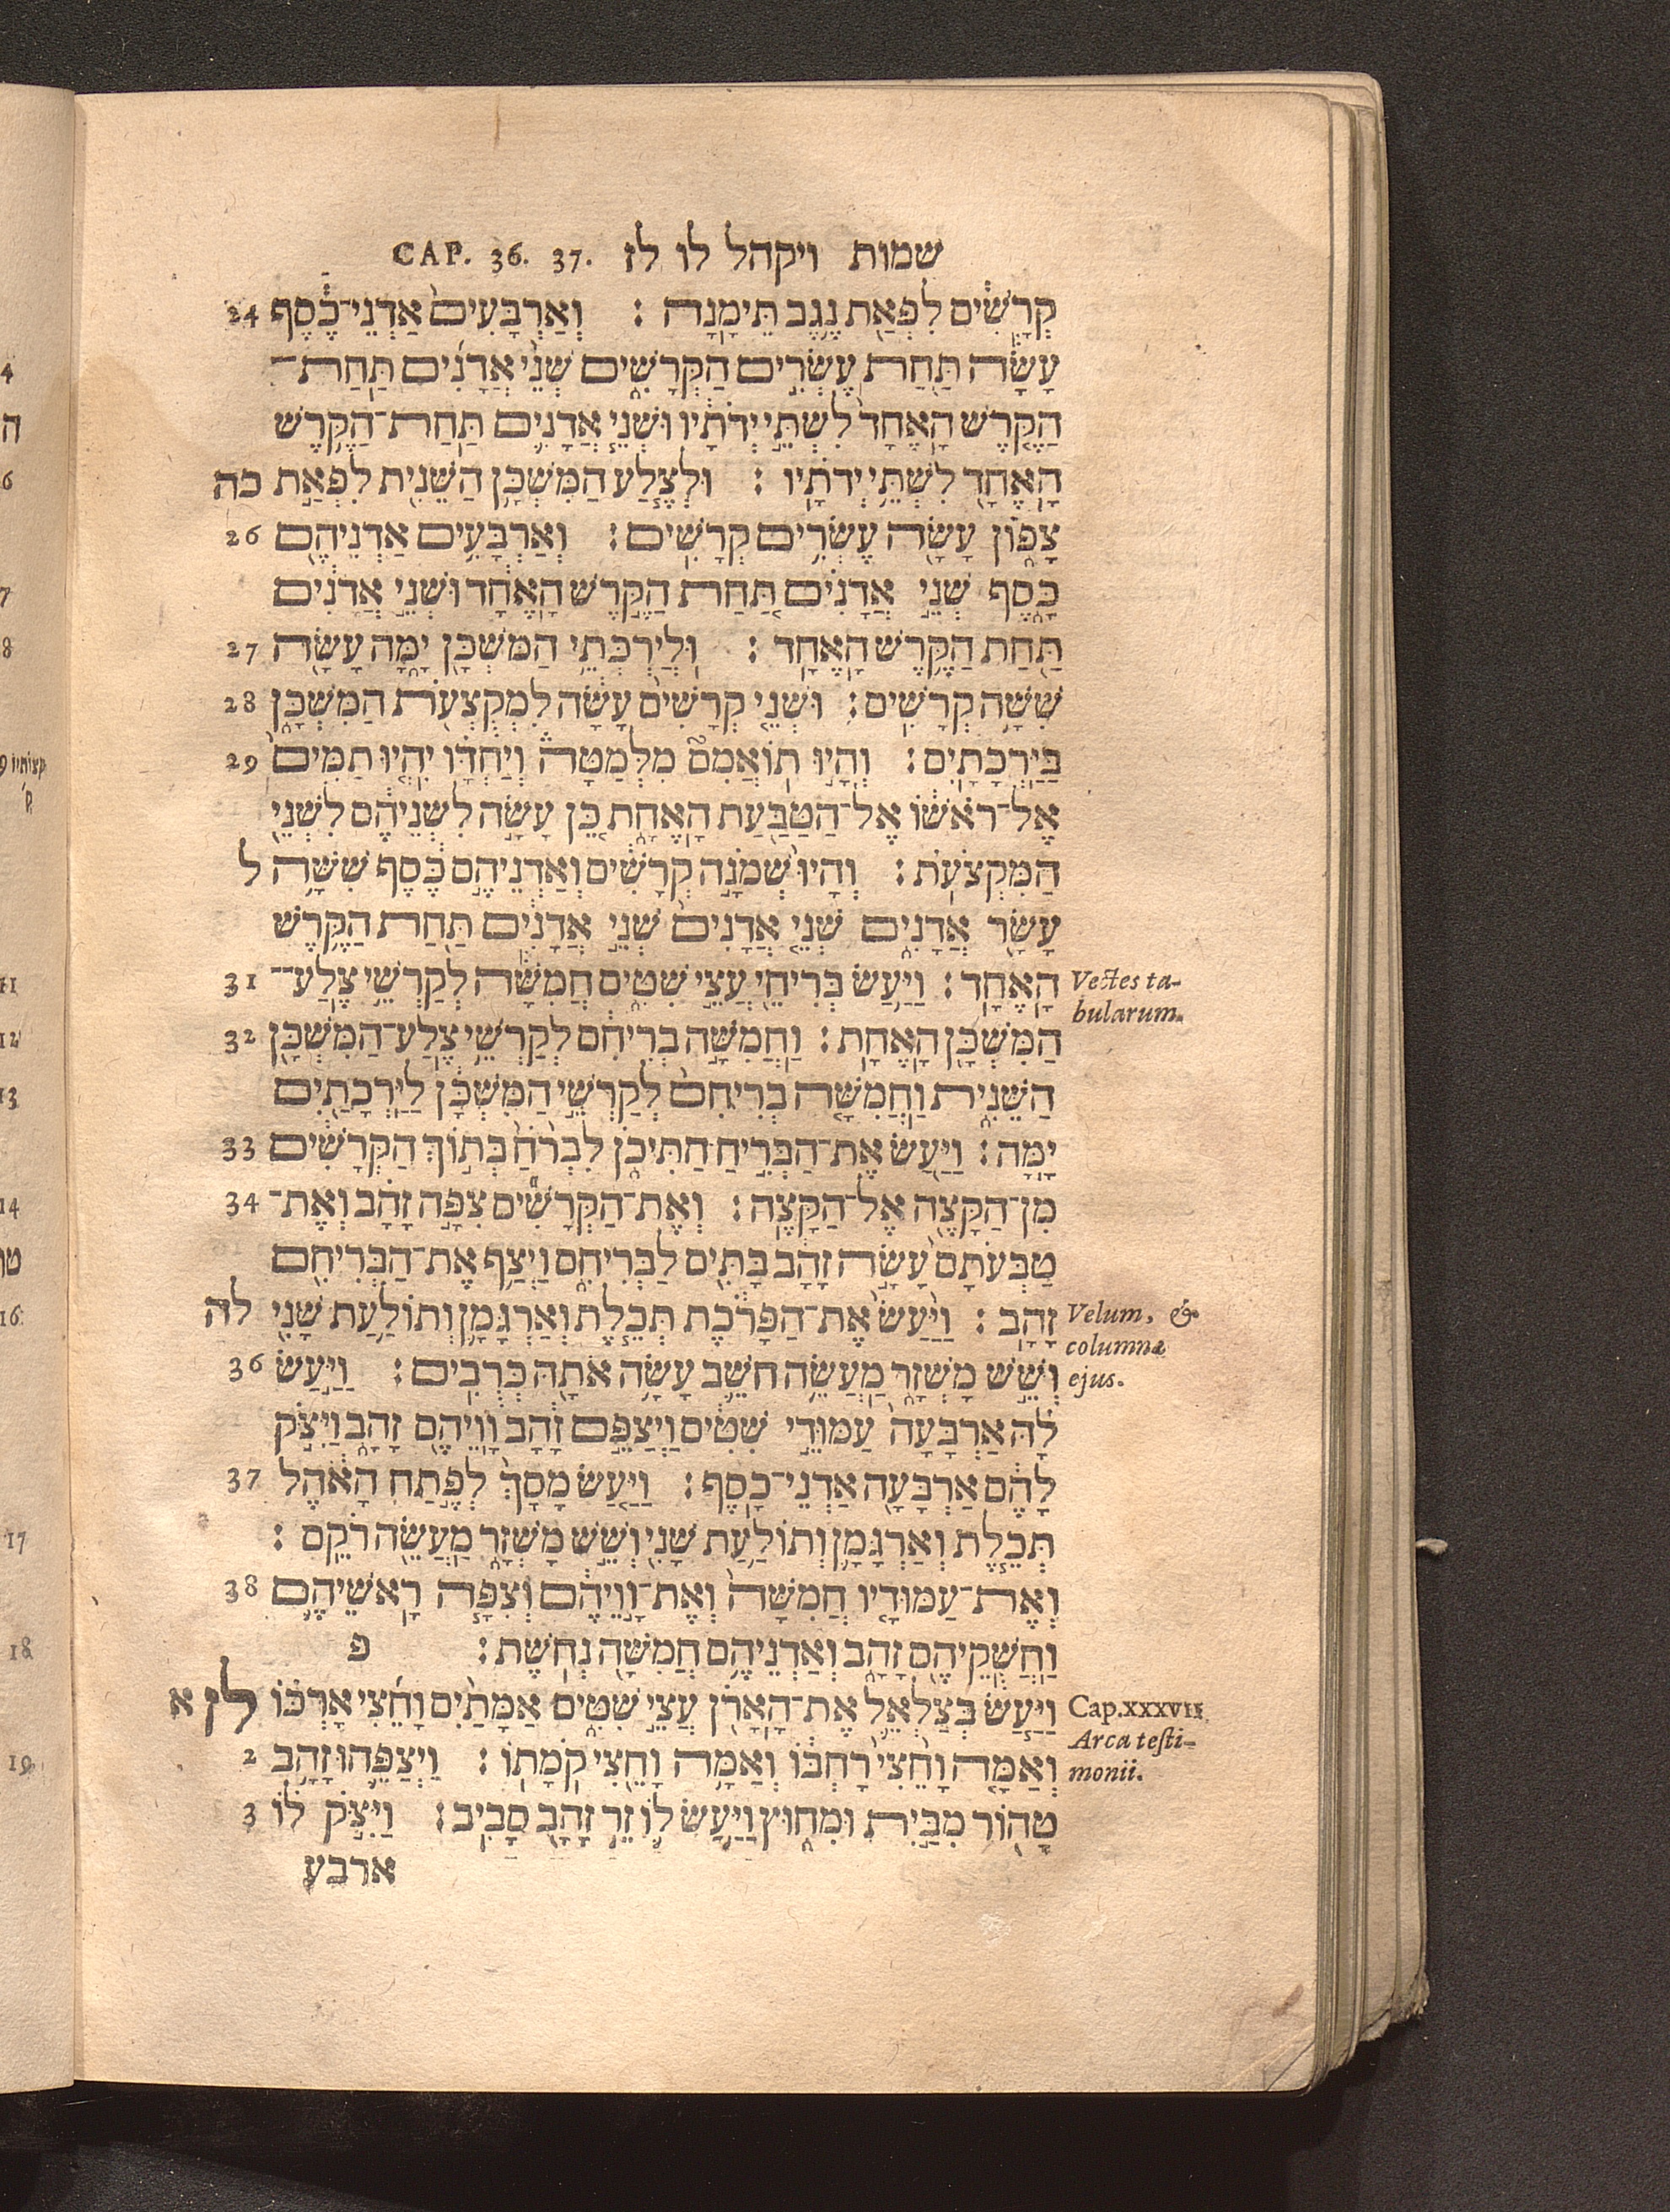 שמות ויקהל לו לז CAP. 36. 37.
קְרָשִׁים לִפְאַת נֶגֶב תֵּימָנָה : וְאַרְבָּעִים אַדְנֵי־כֶסֶף 24
עָשָׂה תַּחַת עֶשְׂרִים הַקְּרָשִׁים שְׁנֵי אֲדָנִים תַּחַת־
הַקֶּרֶשׁ הָאֶחָד לִשְׁתֵּי יְדֹתָיו וּשְׁנֵי אֲדָנִים תַּחַת־הַקֶּרֶשׁ
הָאֶחָד לִשְׁתֵּי יְדֹתָיו : וּלְצֶלַע הַמִּשְׁכָּן הַשֵּׁנִית לִפְאַת כה
צָפוֹן עָשָׂה עֶשְׂרִים קְרָשִׁים : וְאַרְבָּעִים אַדְנֵיהֶם 26
כָּסֶף שְׁנֵי אֲדָנִים תַּחַת הַקֶּרֶשׁ הָאֶחָד וּשְׁנֵי אֲדָנִים
תַּחַת הַקֶּרֶשׁ הָאֶחָד : וּלְיַרְכְּתֵי הַמִּשְׁכָּן יָמָּה עָשָׂה 27
שִׁשָּׁה קְרָשִׁים : וּשְׁנֵי קְרָשִׁים עָשָׂה לִמְקֻצְעֹת הַמִּשְׁכָּן 28
בַּיַּרְכָתָיִם : וְהָיוּ תוֹאֲמִם מִלְּמַטָּה וְיַחְדָּו יִהְיוּ תַמִּים 29
אֶל־רֹאשׁוֹ אֶל־הַטַּבַּעַת הָאֶחָת כֵּן עָשָׂה לִשְׁנֵיהֶם לִשְׁנֵי
הַמִּקְצֹעֹת : וְהָיוּ שְׁמֹנָה קְרָשִׁים וְאַדְנֵיהֶם כֶּסֶף שִׁשָּׁה ל
עָשָׂר אֲדָנִים שְׁנֵי אֲדָנִים שְׁנֵי אֲדָנִים תַּחַת הַקֶּרֶשׁ
הָאֶחָד : וַיַּעַשׂ בְּרִיחֵי עֲצֵי שִׁטִּים חֲמִשָּׁה לְקַרְשֵׁי צֶלַע־ 31
Vectes ta-
bularum.
הַמִּשְׁכָּן הָאֶחָת : וַחֲמִשָּׁה בְרִיחִם לְקַרְשֵׁי צֶלַע־הַמִּשְׁכָּן 32
הַשֵּׁנִית וַחֲמִשָּׁה בְרִיחִם לְקַרְשֵׁי הַמִּשְׁכָּן לַיַּרְכָתַיִם
יָמָּה : וַיַּעַשׂ אֶת־הַבְּרִיחַ הַתִּיכֹן לִבְרֹחַ בְּתוֹךְ הַקְּרָשִׁים 33
מִן־הַקָּצֶה אֶל־הַקָּצֶה : וְאֶת־הַקְּרָשִׁים צִפָּה זָהָב וְאֶת־ 34
טַבְּעֹתָם עָשָׂה זָהָב בָּתִּים לַבְּרִיחִם וַיְצַף אֶת־הַבְּרִיחִם
זָהָב : וַיַּעַשׂ אֶת־הַפָּרֹכֶת תְּכֵלֶת וְאַרְגָּמָן וְתוֹלַעַת שָׁנִי לה
Velum, &
columnæ
ejus.
וְשֵׁשׁ מָשְׁזָר מַעֲשֵׂה חֹשֵׁב עָשָׂה אֹתָהּ כְּרֻבִים : וַיַּעַשׂ 36
לָהּ אַרְבָּעָה עַמּוּדֵי שִׁטִּים וַיְצַפֵּם זָהָב וָוֵיהֶם זָהָב וַיִּצֹק
לָהֶם אַרְבָּעָה אַדְנֵי־כָסֶף : וַיַּעַשׂ מָסָךְ לְפֶתַח הָאֹהֶל 37
תְּכֵלֶת וְאַרְגָּמָן וְתוֹלַעַת שָׁנִי וְשֵׁשׁ מָשְׁזָר מַעֲשֵׂה רֹקֵם :
וְאֶת־עַמּוּדָיו חֲמִשָּׁה וְאֶת־וָוֵיהֶם וְצִפָּה רָאשֵׁיהֶם 38
וַחֲשֻׁקֵיהֶם זָהָב וְאַדְנֵיהֶם חֲמִשָּׁה נְחֹשֶׁת : פ
וַיַּעַשׂ בְּצַלְאֵל אֶת־הָאָרֹן עֲצֵי שִׁטִּים אַמָּתַיִם וָחֵצִי אָרְכּוֹ לז א
Cap.XXXVII
Arca testi-
monii.
וְאַמָּה וָחֵצִי רָחְבּוֹ וְאַמָּה וָחֵצִי קֹמָתוֹ : וַיְצַפֵּהוּ זָהָב 2
טָהוֹר מִבַּיִת וּמִחוּץ וַיַּעַשׂ לוֹ זֵר זָהָב סָבִיב : וַיִּצֹק לוֹ 3
ארבע